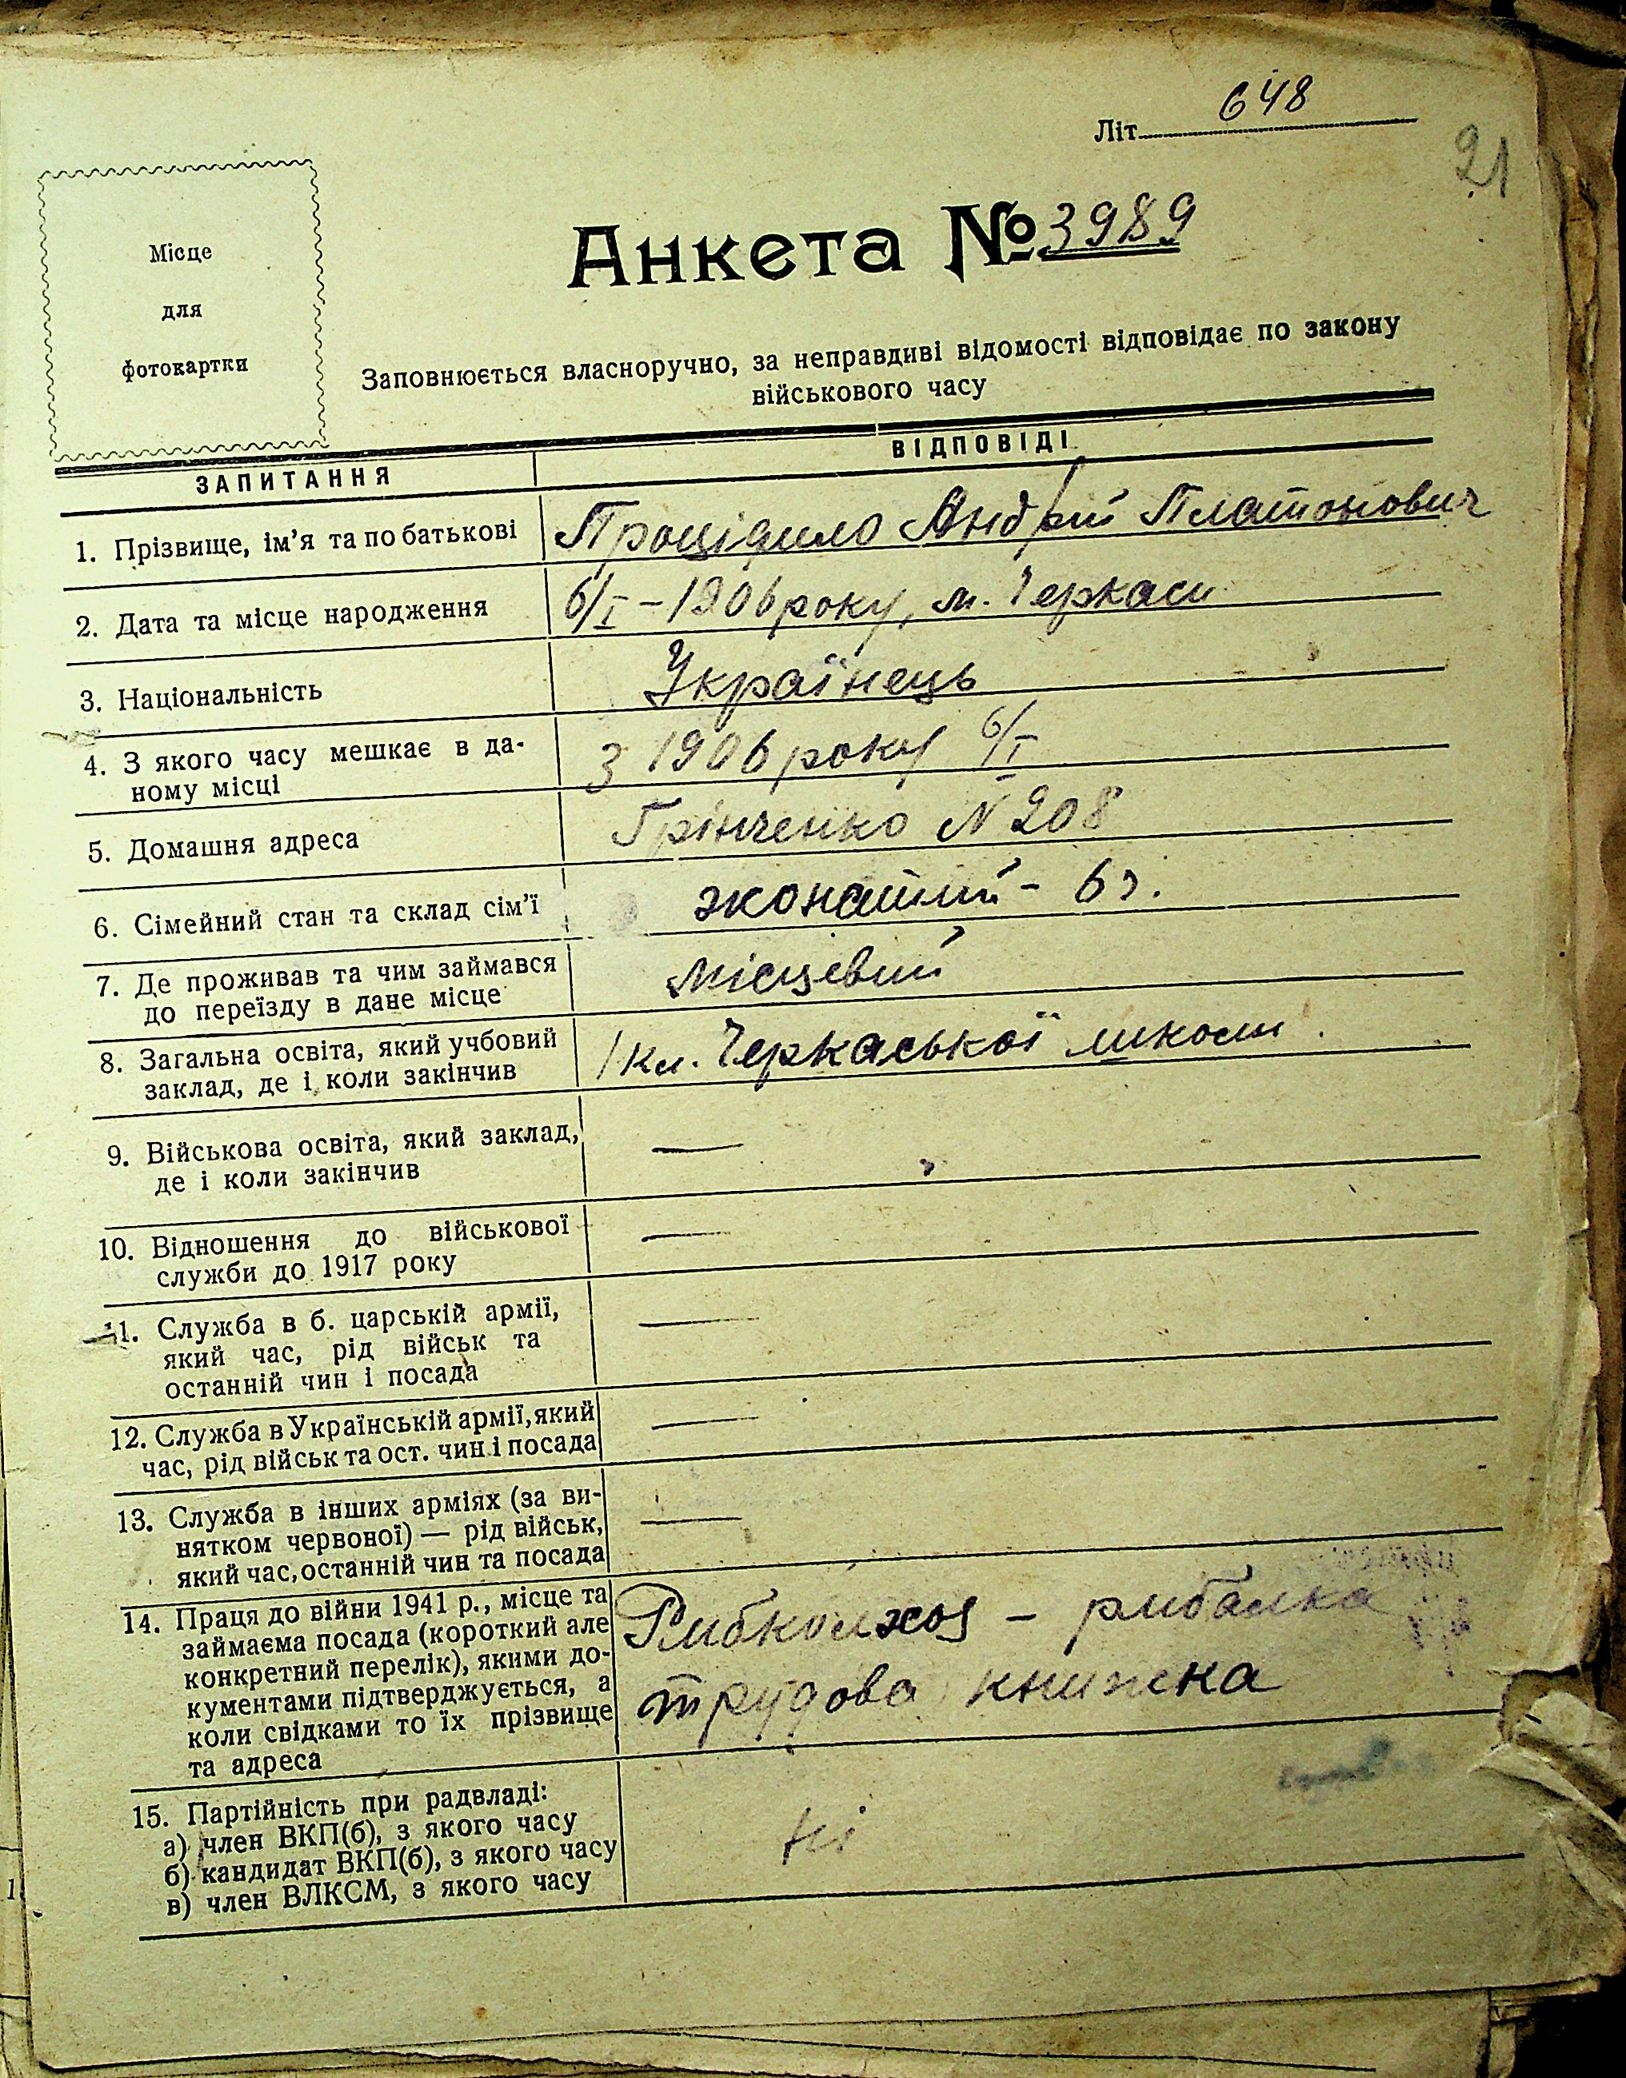 Літ. 648
21
Місце
для
фотокартки
Анкета № 3989
Заповнюється власноручно, за неправдиві відомості відповідає по закону
військового часу
ЗАПИТАННЯ
ВІДПОВІДІ
1. Прізвище, ім'я та по батькові
Процідило Андрій Платонович
2. Дата та місце народження
6/I – 1906 року, м. Черкаси
3. Національність
Українець
4. З якого часу мешкає в да-
ному місці
З 1906 року 6/I
5. Домашня адреса
Грінченко N 208
6. Сімейний стан та склад сім'ї
жонатий – 6 ч.
7. Де проживав та чим займався
до переїзду в дане місце
місцевий
8. Загальна освіта, який учбовий
заклад, де і коли закінчив
1 кл. Черкаської школи.
9. Військова освіта, який заклад,
де і коли закінчив
—
10. Відношення до військової
служби до 1917 року
—
11. Служба в б. царській армії,
який час, рід військ та
останній чин і посада
—
12. Служба в Українській армії, який
час, рід військ та ост. чин і посада
—
13. Служба в інших арміях (за ви-
нятком червоної) — рід військ,
який час, останній чин та посада
—
14. Праця до війни 1941 р., місце та
займаєма посада (короткий але
конкретний перелік), якими до-
кументами підтверджується, а
коли свідками то їх прізвище
та адреса
Рибколхоз – рибалка
трудова книжка
15. Партійність при радвладі:
а) член ВКП(б), з якого часу
б) кандидат ВКП(б), з якого часу
в) член ВЛКСМ, з якого часу
ні